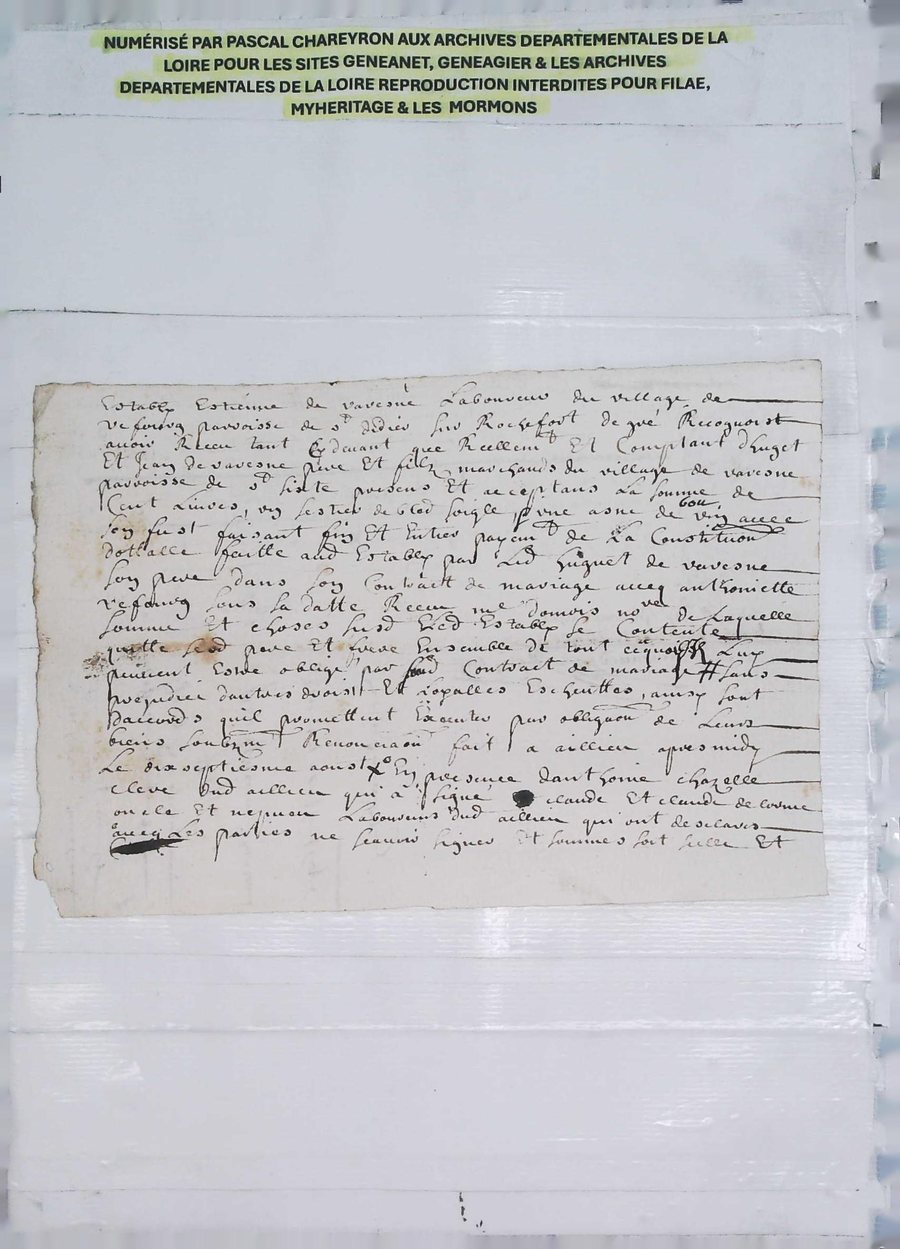 NUMÉRISÉ PAR PASCAL CHAREYRON AUX ARCHIVES DEPARTEMENTALES DE LA
LOIRE POUR LES SITES GENEANET, GENEAGIER & LES ARCHIVES
DEPARTEMENTALES DE LA LOIRE REPRODUCTION INTERDITES POUR FILAE,
MYHERITAGE & LES MORMONS
Establý Estienne de varesne Laboureur du village de
parroisse de st didier sur Rochefort de gré Recognoist
avoir Receu tant cy devant que Reellemt Et Comptant d'huget
Et Jean de varesne pere Et filz marchands du village de varesne
parroisse de st Sixte presens Et acceptans La somme de
Cent Livres, un sestier de bled soigle, une asne de bon vin avecq
son fust faisant fin Et Entier payemt de La Constitution
dottalle faitte aud Establý par Led huguet de varesne
son pere dans son Contract de mariage avecq anthoniette
sous sa datte Receu me no.re de Laquelle
somme Et choses susd Led Establý se Contente
quitte sesd pere Et frere Ensemble de tout ce Luy
peuvent Estre obligé par sond Contract de mariage # sans
prejudice dautres droits Et Loyalles Escheuttes, ainsy sont
daccords quil promettent Executer par obligaon de Leurs
biens soubzmt Renonciaon fait a aillieu apres midy
Le dix septiesme aoust En presence danthoine chazelle
clerc dud aillieu qui a signé claude Et claude de
oncle Et nepveu Laboureurs dud aillieu qui ont desclaré
avecq Les parties ne scavoir signer Et sommes soit Et